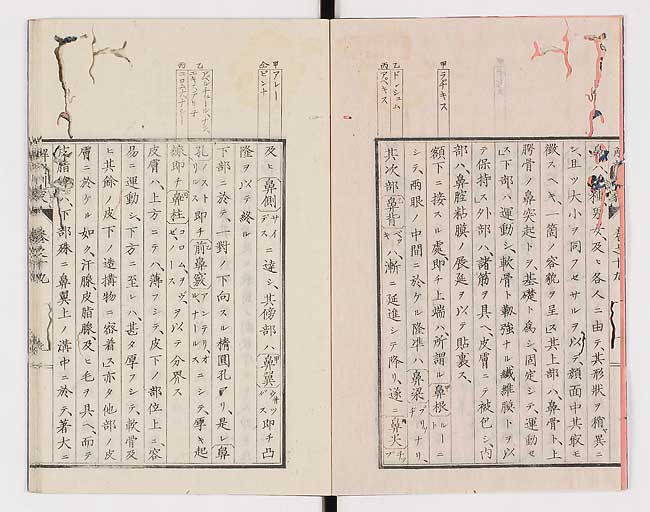 甲
ラヂキス
乙
ドルシュム
丙
アペキス
鼻ハ、人種男女、及ヒ各人ニ由テ、其形狀ヲ稍異ニ
シ、且ツ大小ヲ同フセサルヲ以テ、顏面中其最モ
徴スヘキ、一箇ノ容貌ヲ呈ス、其上部ハ、鼻骨ト上
腭骨ノ鼻突起トヲ、基礎ト爲シ、固定シテ、運動セ
ス、下部ハ運動シ、軟骨ト鞏強ナル纖維膜トヲ以
テ保持ス、外部ハ諸筋ヲ具ヘ、皮膚ニテ被包シ、内
部ハ、鼻腔粘膜ノ展延ヲ以テ貼裏ス、
額下ニ接スル處、即チ上端ハ、所謂ル鼻根ルート
シテ、兩眼ノ中間ニ於ケル隆準ハ鼻梁ブリッヂナリ、
其次部鼻背バックハ、漸ニ延進シテ降リ、遂ニ鼻尖チップ
甲
アレー
仝
ピンナ
乙
丙
及ヒ鼻側サイデスニ達シ、其傍部ハ鼻翼ウィングス即チ凸
隆ヲ以テ終ル
下部ニ於テ、一對ノ下向スル橢圓孔アリ、是レ鼻
孔ノストリル即チ前鼻竅アンテリオル、ナールスニシテ、厚キ起
線即チ鼻柱コロム、ヲヴ、ゼ、ノースヲ以テ分界ス
皮膚ハ、上方ニテハ、薄フシテ、皮下ノ部位上ニ、容
易ニ運動シ、下方ニ至レハ、甚タ厚フシテ、軟骨及
ヒ其餘ノ皮下ノ造搆物ニ密着ス、亦タ他部ノ皮
膚ニ於ケル如ク、汗腺、皮脂腺、及ヒ毛ヲ具ヘ、而テ
皮脂腺ハ、下部殊ニ鼻翼上ノ溝中ニ於テ、著大ニ